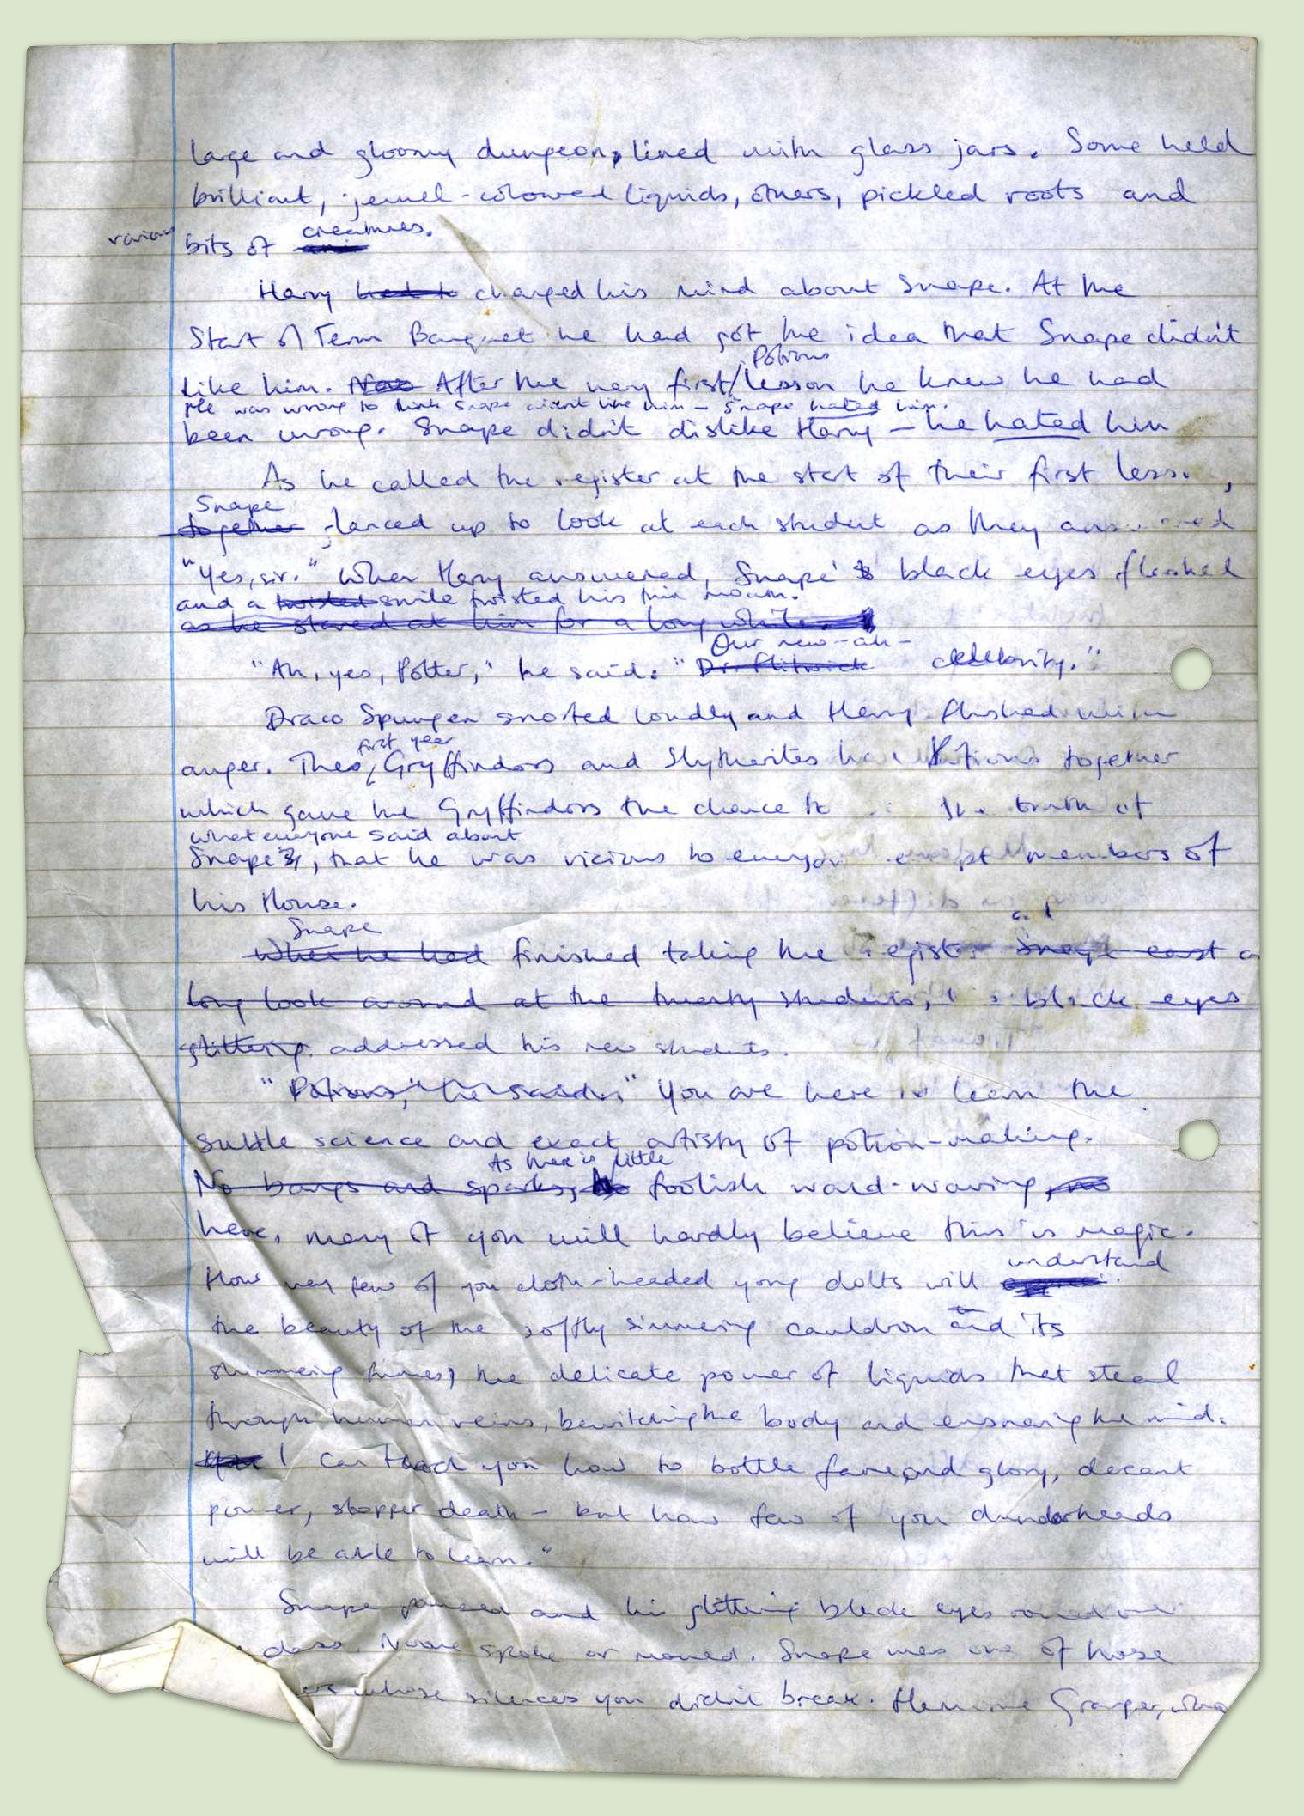 large and gloomy dungeon, lined with glass jars. Some held
brilliant, jewel-coloured liquids, others, pickled roots and
various
creatures.
bits of
Harry had to changed his mind about Snape. At the
Start of Term Banquet he had got the idea that Snape didn't
Potions
like him. Now After the very first lesson he knew he had
He was wrong to think Snape didn't like him - Snape hated him.
been wrong. Snape didn't dislike Harry - he hated him
As he called the register at the start of their first
Snape
together glanced up to look at each student as they answered
"Yes, sir." When Harry answered, Snape's black eyes flashed
and a twisted smile twisted his thin mouth.
as he stared at him for a long while.
Our new - ah -
"Ah, yes, Potter," he said. "Dr. Flitwick celebrity."
Draco Spungen snorted loudly and Harry flushed with
first year
anger. The Gryffindors and Slytherites had Potions together
which gave the Gryffindors the chance to truth of
what everyone said about
Snape, that he was vicious to everyone except members of
his House.
Snape
and
When he had finished taking the register Snape cast a
long look around at the twenty students, his black eyes
glittering. addressed his new students.
"Potions," he said. "You are here to learn the
subtle science and exact artistry of potion-making.
As there is little
No bangs and sparks, no foolish wand-waving, no
here, many of you will hardly believe this is magic.
understand
How very few of you cloth-headed young dolts will
the beauty of the softly simmering cauldron and its
shimmering fumes, the delicate power of liquids that steal
through human veins, bewitching the body and ensnaring the mind.
I can teach you how to bottle fame and glory, decant
power, stopper death - but how few of you dunderheads
will be able to learn."
Snape paused and his glittering black eyes roved over
class. No one spoke or moved. Snape was one of those
whose silences you didn't break. Hermione Granger, who